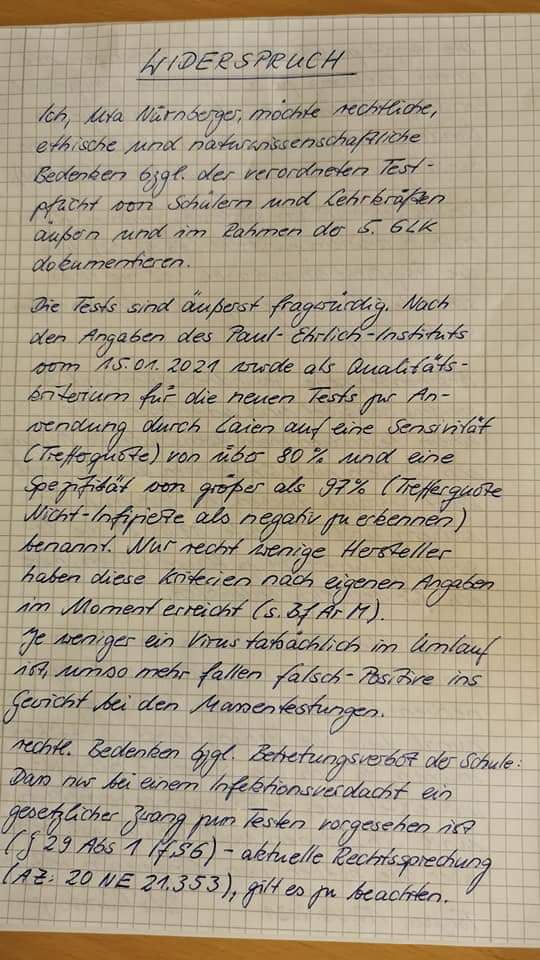 WIDERSPRUCH
Ich, Uta Nürnberger, möchte rechtliche,
ethische und naturwissenschaftliche
Bedenken bzgl. der verordneten Test-
pflicht von Schülern und Lehrkräften
äußern und im Rahmen der 5. GLK
dokumentieren.
Die Tests sind äußerst fragwürdig. Nach
den Angaben des Paul-Ehrlich-Instituts
vom 15.01.2021 wurde als Qualitäts-
kriterium für die neuen Tests zur An-
wendung durch Laien auf eine Sensivität
(Trefferquote) von über 80% und eine
Spezifität von größer als 97% (Trefferquote
Nicht-Infizierte als negativ zu erkennen)
benannt. Nur recht wenige Hersteller
haben diese Kriterien nach eigenen Angaben
im Moment erreicht (s. BfArM).
Je weniger ein Virus tatsächlich im Umlauf
ist, umso mehr fallen falsch-Positive ins
Gewicht bei den Massentestungen.
rechtl. Bedenken bzgl. Betretungsverbot der Schule:
Dass nur bei einem Infektionsverdacht ein
gesetzlicher Zwang zum Testen vorgesehen ist
(§ 29 Abs 1 IfSG) - aktuelle Rechtssprechung
(AZ: 20 NE 21.353), gilt es zu beachten.